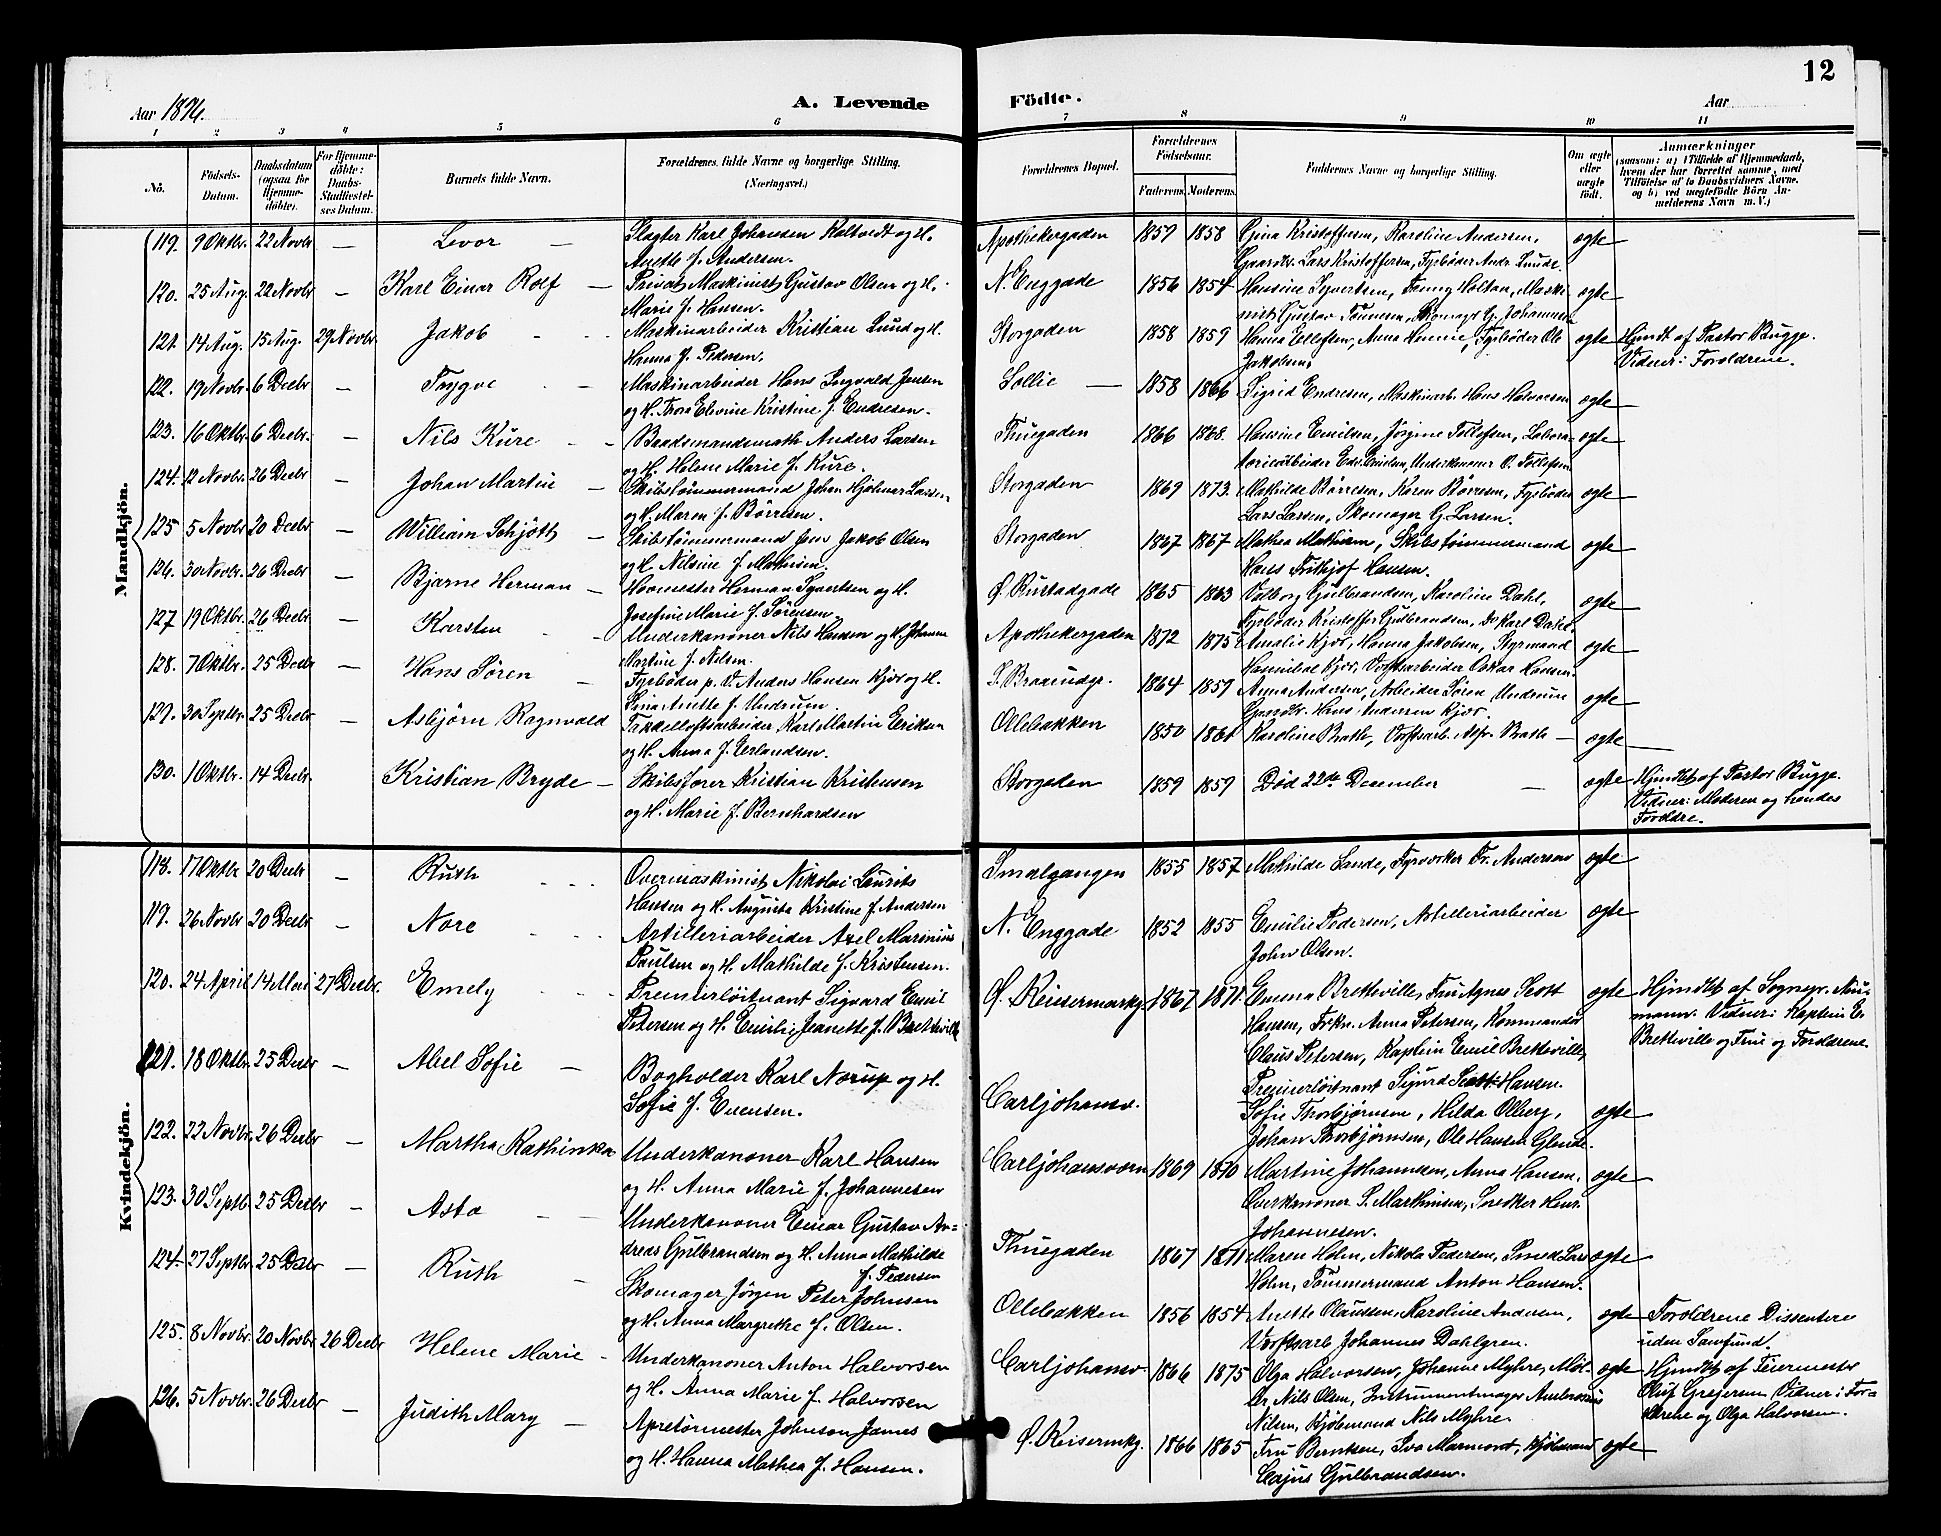 12
Aar 1896.
A. Levende
Födte.
Aar
1 2 3 4 5 6 7 8 9 10 11
No.
Födsels-Datum.
Daabsdatum (ogsaa for Hjemme-döbte).
For Hjemme-döbte: Daabs-Stadfæstel-ses Datum.
Barnets fulde Navn.
Forældrenes fulde Navne og borgerlige Stilling. (Næringsvei.)
Forældrenes Bopæl.
Forældrenes Födselsaar.
Faderens. Moderens.
Faddernes Navne og borgerlige Stilling.
Om ægte eller uægte födt.
Anmærkninger
(saasom: a) i Tilfælde af Hjemmedaab, hvem der har forrettet samme, med Tilföielse af to Daabsvidners Navne, og b) ved uægtefödte Börn An-melderens Navn m. V.)
Mandkjön.
119. 9 Oktbr. 22 Novbr — Levor — Slagter Karl Johansen Kaltvedt og H. Anette f. Andersen. Apothekergaden 1859 1858 Gina Kristoffersen, Karoline Andersen, Gaardbr. Lars Kristoffersen, Fyrbøder Andr. Lunde. ægte
120. 25 Aug. 22 Novbr — Karl Einar Rolf — Privat Maskinist Gustav Olsen og H. Marie f. Hansen. N. Enggade 1856 1854 Hansine Syvertsen, Fanny Holtan, Maski-nist Gustav Tennesen, Skomager G. Johannesen ægte
121. 14 Aug. 15 Aug. 29 Novbr. Jakob - - Maskinarbeider Kristian Lund og H. Hanna f. Pedersen. Storgaden 1858 1859 Hanna Ellefsen, Anna Hennie, Fyrbøder Ole Jakobsen. ægte Hjmdt af Pastor Bugge. Vidner: Forældrene.
122. 19 Novbr. 6 Decbr — Trygve - - Maskinarbeider Hans Ingvald Jensen og H. Thora Elevine Kristine f. Endresen. Sollie — 1858 1866 Sigrid Endresen, Maskinarb. Hans Halvorsen ægte
123. 16 Oktbr. 6 Decbr. — Nils Kure - - Baadsmandsmath Anders Larsen og H. Helene Marie f. Kure. Thuegaden 1866 1868. Hansine Emilsen, Jørgine Tollefsen, Labora-torieatbeider Edv. Emilsen, Underkanoner O. Tollefsen ægte
124. 12 Novbr. 26 Decbr — Johan Martin — Skibstømmermand Johan Hjalmar Larsen og H. Maren f. Børresen. Storgaden 1869 1873. Mathilde Børresen, Karen Børresen, Fyrbøder Lars Larsen, Skomager G. Larsen. ægte
125 5 Novbr 20 Decbr — William Schjøtt — Skibstømmermand Jens Jakob Olsen og H. Nilsine f. Mathisen. Storgaden 1867 1867 Mathea Mathisen, Skibstømmermand Hans Frithjof Hansen. ægte
126. 30 Novbr. 26 Decbr — Bjarne Herman — Hovmester Herman Syvertsen og H. Josefine Marie f. Sørensen. Ø. Rustadgade 1865 1863 Valborg Gulbrandsen, Karoline Dahl, Fyrbøder Kristoffer Gulbrandsen, Do Karl Dahl. ægte
127 19 Oktbr. 26 Decbr — Karsten - - Underkanoner Nils Hansen og H. Johanne Martine f. Nilsen. Apothekergaden 1872 1875 Amalie Kjær, Hanna Jakobsen, Styrmand Hannibal Kjær, Værftsarbeider Oskar Hansen. ægte
128. 7 Oktbr. 25 Decbr — Hans Sören — Fyrbøder p. V. Anders Hansen Kjær og H. Sina Anette f. Undrum. S. Braarudgt. 1864 1859 Anna Andersen, Arbeider Søren Undrum Gaardbr. Hans Andersen Kjær. ægte
129. 30 Septbr. 25 Decbr — Asbjörn Ragnvald Takkelloftsarbeider Karl Martin Eriksen og H. Anna f. Erlandsen. Ollebakken 1850 1861 Karoline Brath, Værftsarb. Alfr. Brath — ægte —
130. 1 Oktbr. 14 Decbr. Kristian Bryde — Skibsfører Kristian Kristensen og H. Marie f. Bernhardsen Storgaden 1859 1859 Død 22de December — ægte Hjmdbt af Pastor Bugge. Vidner: Moderen og hendes Forældre.
Kvindekjön.
118. 17 Oktbr 20 Decbr — Ruth - - - Overmaskinist Nikolai Laurits Hansen og H. Augusta Kristine f. Andersen Smalgangen 1855 1857 Mathilde Lande, Fyrværker Fr. Andersen ægte
119. 26 Novbr 20 Decbr — Nore - - - Artilleriarbeider Axel Marinius Paulsen og H. Mathilde f. Kristensen. N. Enggade 1852 1855 Emilie Pedersen, Artilleriarbeider John Olsen. ægte
120. 24 April 14 Mai 27 Decbr. Emely - - - Premierløitnant Sigvard Emil Petersen og H. Emilie Jeanette f. Bretteville Ø. Keisermarkg. 1867 1871. Emma Bretteville, Fru Agnes Scott Hansen, Frkn. Anna Petersen, Kommandør Claus Petersen, Kaptein Emil Bretteville, Premierløitnant Sigurd Scott Hansen. ægte Hjmdbt af Sognepr. Nau-mann. Vidner: Kaptein E. Bretteville og Frue og Forældrene.
121. 18 Oktbr. 25 Decbr — Abel Sofie — Bogholder Karl Norup og H. Sofie f. Evensen. Carljohansv. Sofie Thorbjørnsen, Hilda Olberg, Johan Thorbjørnsen, Ole Hansen Glende. ægte
122. 22 Novbr. 26 Decbr — Martha Kathinka Underkanoner Karl Hansen og H. Anna Marie f. Johannesen Carljohansværn 1869 1870 Martine Johannsen, Anna Hansen, Overkanoner S. Marthinsen, Snedker Hans Johannesen. ægte
123. 30 Septb. 25 Decbr — Asta — — Underkanoner Einar Gustav An-dreas Gulbrandsen og H. Anna Mathilde f. Pedersen Thuegaden 1867 1871 Maren Holm, Nikola Pedersen, Smed Lars Holm, Tømmermand Anton Hansen. ægte
124. 27 Septbr 25 Decbr — Ruth — Skomager Jørgen Peter Johnsen og H. Anna Margrethe f. Olsen. Ollebakken 1856 1854 Anette Claussen, Karoline Andersen, Værftsarb Johannes Dahlgren. ægte Forældrene Dissentere uden Samfund.
125. 8 Novbr. 20 Novbr 26 Decbr Helene Marie - Underkanoner Anton Halvorsen og H. Anna Marie f. Halvorsen Carljohansv 1866 1875 Olga Halvorsen, Johanne Myhre, Møl-ler Nils Olsen, Instrumentmager Ambrosius Nilsen, Kjøbmand Nils Myhre. ægte Hjmdbt af Feiermester Oluf Grejersen. Vidner: For-ældrene og Olga Halvorsen.
126. 5 Novbr. 26 Decbr — Judith Mary — Apretørmester Johnson James og H. Hanna Mathea f. Hansen. Ø. Keisermkg. 1866 1865 Fru Berntsen, Iva Marmont, Kjøbmand Cajus Gulbrandsen. ægte